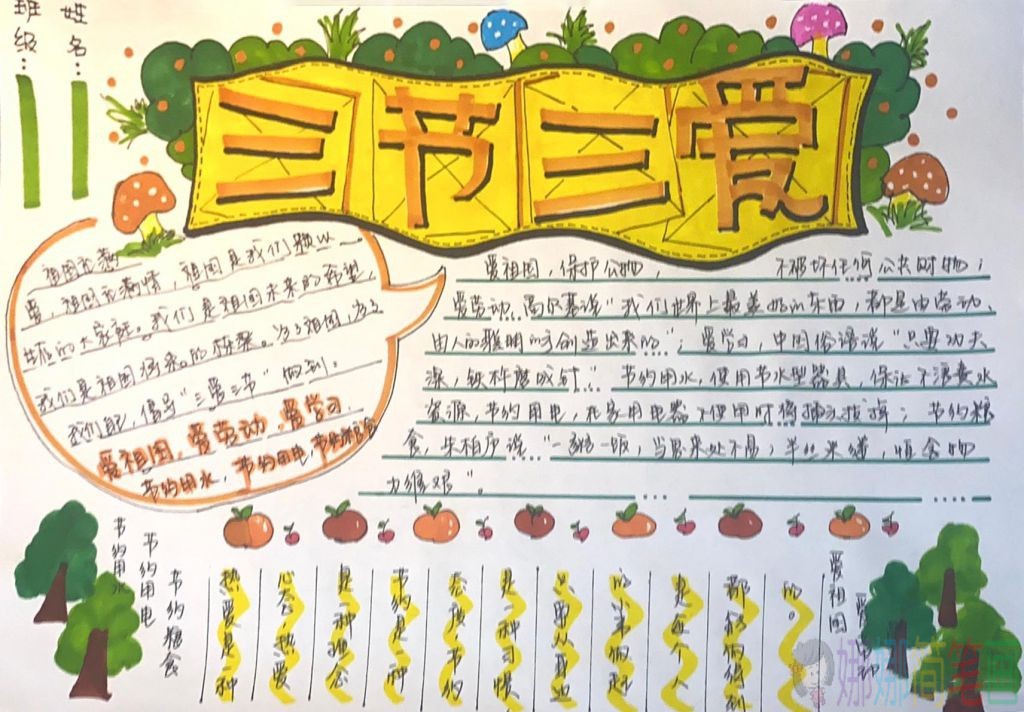 班级:
姓名:
三节三爱
祖国充满
爱,祖国充满情,祖国是我们赖以
生存的大家庭。我们是祖国未来的希望,
我们是祖国将来的栋梁。为了祖国,为了
我们自己,倡导“三爱三节”做到:
爱祖国,爱劳动,爱学习.
节约用水,节约用电,节约粮食
爱祖国,保护公物, 不破坏任何公共财物;
爱劳动,高尔基说“我们世界上最美好的东西,都是由劳动、
由人的聪明的手创造出来的”;爱学习,中国俗语说“只要功夫
深,铁杵磨成针”节约用水,使用节水型器具,保证不浪费水
资源,节约用电,在家用电器不使用时将插头拔掉;节约粮
食,朱柏庐说“一粥一饭,当思来处不易;半丝半缕,恒念物
力维艰”。
节约用水
节约用电
节约粮食
热爱是一种
心态,热爱
是一种理念
节约是一种
态领,节约
是一种习惯
只要从身边
的小事做起
是每个人
都能做得到
的。
爱祖国
爱劳动
娜娜简笔画